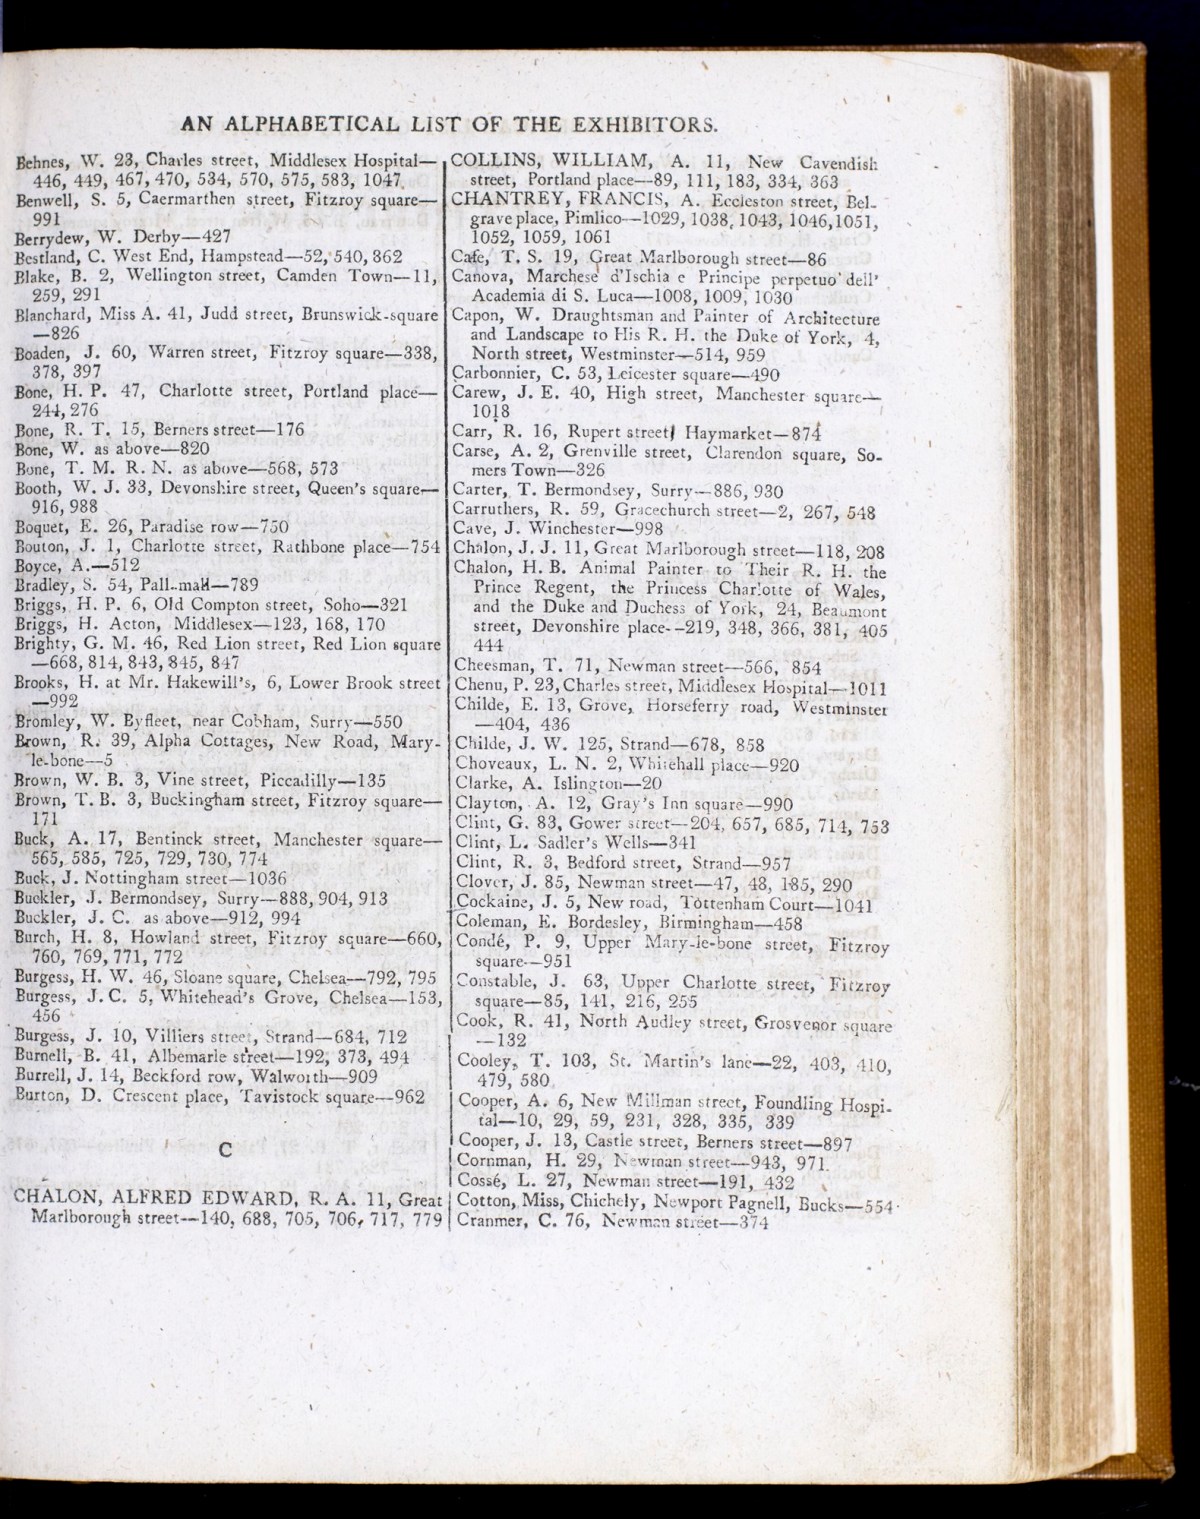 AN ALPHABETICAL LIST OF THE EXHIBITORS.
Behnes, W. 23, Charles street, Middlesex Hospital—
446, 449, 467, 470, 534, 570, 575, 583, 1047.
Benwell, S. 5, Caermarthen street, Fitzroy square—
991
Berrydew, W. Derby—427
Bestland, C. West End, Hampstead—52, 540, 862
Blake, B. 2, Wellington street, Camden Town—11,
259, 291
Blanchard, Miss A. 41, Judd street, Brunswick-square
—826
Boaden, J. 60, Warren street, Fitzroy square—338,
378, 397
Bone, H. P. 47, Charlotte street, Portland place—
244, 276
Bone, R. T. 15, Berners street—176
Bone, W. as above—820
Bone, T. M. R. N. as above—568, 573
Booth, W. J. 33, Devonshire street, Queen's square—
916, 988
Boquet, E. 26, Paradise row—750
Bouton, J. 1, Charlotte street, Rathbone place—754
Boyce, A.—512
Bradley, S. 54, Pall-mall—789
Briggs, H. P. 6, Old Compton street, Soho—321
Briggs, H. Acton, Middlesex—123, 168, 170
Brighty, G. M. 46, Red Lion street, Red Lion square
—668, 814, 843, 845, 847
Brooks, H. at Mr. Hakewill's, 6, Lower Brook street
—992
Bromley, W. Byfleet, near Cobham, Surry—550
Brown, R. 39, Alpha Cottages, New Road, Mary-
le-bone—5
Brown, W. B. 3, Vine street, Piccadilly—135
Brown, T. B. 3, Buckingham street, Fitzroy square—
171
Buck, A. 17, Bentinck street, Manchester square—
565, 585, 725, 729, 730, 774
Buck, J. Nottingham street—1036
Buckler, J. Bermondsey, Surry—888, 904, 913
Buckler, J. C. as above—912, 994
Burch, H. 8, Howland street, Fitzroy square—660,
760, 769, 771, 772
Burgess, H. W. 46, Sloane square, Chelsea—792, 795
Burgess, J. C. 5, Whitehead's Grove, Chelsea—153,
456
Burgess, J. 10, Villiers street, Strand—684, 712
Burnell, B. 41, Albemarle street—192, 373, 494
Burrell, J. 14, Beckford row, Walworth—909
Burton, D. Crescent place, Tavistock square—962
C
CHALON, ALFRED EDWARD, R. A. 11, Great
Marlborough street—140, 688, 705, 706, 717, 779
COLLINS, WILLIAM, A. 11, New Cavendish
street, Portland place—89, 111, 183, 334, 363
CHANTREY, FRANCIS, A. Eccleston street, Bel-
grave place, Pimlico—1029, 1038, 1043, 1046, 1051,
1052, 1059, 1061
Cafe, T. S. 19, Great Marlborough street—86
Canova, Marchese d'Ischia e Principe perpetuo dell'
Academia di S. Luca—1008, 1009, 1030
Capon, W. Draughtsman and Painter of Architecture
and Landscape to His R. H. the Duke of York, 4,
North street, Westminster—514, 959
Carbonnier, C. 53, Leicester square—490
Carew, J. E. 40, High street, Manchester square—
1018
Carr, R. 16, Rupert street, Haymarket—874
Carse, A. 2, Grenville street, Clarendon square, So-
mers Town—326
Carter, T. Bermondsey, Surry—886, 930
Carruthers, R. 59, Gracechurch street—2, 267, 548
Cave, J. Winchester—998
Chalon, J. J. 11, Great Marlborough street—118, 208
Chalon, H. B. Animal Painter to Their R. H. the
Prince Regent, the Princess Charlotte of Wales,
and the Duke and Duchess of York, 24, Beaumont
street, Devonshire place—219, 348, 366, 381, 405
444
Cheesman, T. 71, Newman street—566, 854
Chenu, P. 23, Charles street, Middlesex Hospital—1011
Childe, E. 13, Grove, Horseferry road, Westminster
—404, 436
Childe, J. W. 125, Strand—678, 858
Choveaux, L. N. 2, Whitehall place—920
Clarke, A. Islington—20
Clayton, A. 12, Gray's Inn square—990
Clint, G. 83, Gower street—204, 657, 685, 714, 753
Clint, L. Sadler's Wells—341
Clint, R. 3, Bedford street, Strand—957
Clover, J. 85, Newman street—47, 48, 185, 290
Cockaine, J. 5, New road, Tottenham Court—1041
Coleman, E. Bordesley, Birmingham—458
Condé, P. 9, Upper Mary-le-bone street, Fitzroy
square—951
Constable, J. 63, Upper Charlotte street, Fitzroy
square—85, 141, 216, 255
Cook, R. 41, North Audley street, Grosvenor square
—132
Cooley, T. 103, St. Martin's lane—22, 403, 410,
479, 580
Cooper, A. 6, New Millman street, Foundling Hospi-
tal—10, 29, 59, 231, 328, 335, 339
Cooper, J. 13, Castle street, Berners street—897
Cornman, H. 29, Newman street—943, 971
Cossé, L. 27, Newman street—191, 432
Cotton, Miss, Chichely, Newport Pagnell, Bucks—554
Cranmer, C. 76, Newman street—374